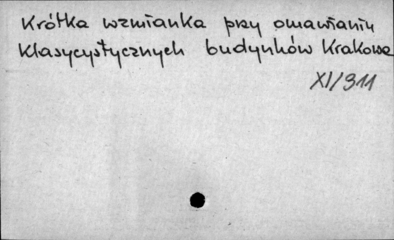 Krótka wzmianka przy omawianiu
klasycystycznych budynków Krakowa
XI/311